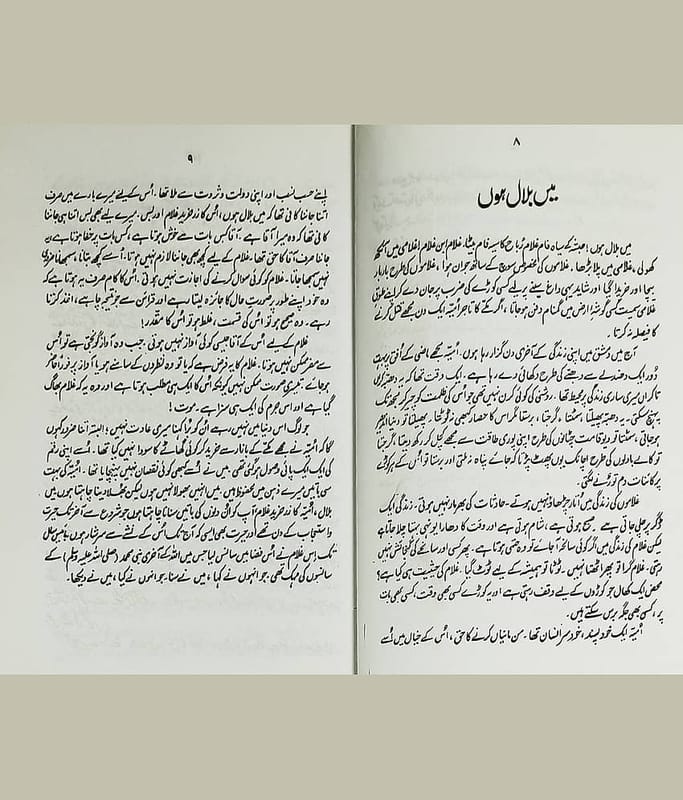 ۸
میں بلال ہوں
میں بلال ہوں! حبشہ کے سیاہ فام غلام رباح کا سیہ فام بیٹا، غلام ابنِ غلام! غلامی میں آنکھ
کھولی، غلامی میں پلا بڑھا۔ غلاموں کی مخصوص سوچ کے ساتھ جوان ہوا، غلاموں کی طرح بارہا
بیچا اور خریدا گیا اور شاید یہی داغ سینے پر لیے کسی کوڑے کی ضرب پر جان دے کر اپنے طوقِ
غلامی سمیت کسی گوشۂ ارض میں گمنام دفن ہو جاتا، اگر مکّے کا تاجر اُمیّہ ایک دن مجھے قتل کرنے
کا فیصلہ نہ کرتا۔
آج میں دمشق میں اپنی زندگی کے آخری دن گزار رہا ہوں۔ اُمیّہ مجھے ماضی کے اُفق پر بہت
دُور ایک دھندلے سے دھبّے کی طرح دکھائی دے رہا ہے۔ ایک وقت تھا کہ یہ دھبّہ کراں
تا کراں میری ساری زندگی پر محیط تھا۔ روشنی کی کوئی کرن ایسی نہیں تھی جو اُس کی ظلمت کو چیر کر مجھ تک
پہنچ سکتی۔ یہ دھبّہ پھیلتا، سمٹتا، گرجتا، برستا مگر اس کا حصار کبھی نہ ٹوٹتا۔ پھیلتا تو فضا ابتر
ہو جاتی، سمٹتا تو دو قامت چٹانوں کی طرح اپنی پوری طاقت سے مجھے کچل کر رکھ دیتا، گرجتا
تو کالے بادلوں کی طرح اچانک یوں پھٹ پڑتا کہ جائے پناہ نہ ملتی اور برستا تو اُس کے ہر کوڑے
پر کائنات دم توڑنے لگتی۔
غلاموں کی زندگی میں اُتار چڑھاؤ نہیں ہوتے۔ حادثات کی بھرمار نہیں ہوتی۔ زندگی ایک
ڈگر پر چلی جاتی ہے۔ صبح ہوتی ہے، شام ہوتی ہے اور وقت کا دھارا یونہی بہتا چلا جاتا ہے
لیکن غلام کی زندگی میں اگر کوئی سانحہ آ جائے تو وہ حتمی ہوتا ہے۔ پھر کسی اور سانحے کی گنجائش نہیں
رہتی۔ غلام گرا تو پھر اُٹھتا نہیں۔ ٹوٹا تو ہمیشہ کے لیے ٹوٹ گیا۔ غلام کی حیثیت ہی کیا ہے؟
محض ایک کھال جو کوڑوں کے لیے وقف رہتی ہے اور یہ کوڑے کسی بھی وقت، کسی بھی بات
پر، کسی بھی جگہ برس سکتے ہیں۔
اُمیّہ ایک خود پسند، خود سر انسان تھا۔ من مانیاں کرنے کا حق، اُس کے خیال میں اُسے
۹
اپنے حسب نسب اور اپنی دولت و ثروت سے ملا تھا۔ اُس کے لیے میرے بارے میں صرف
اتنا جاننا کافی تھا کہ میں بلال ہوں، اُس کا زرخرید غلام اور بس۔ میرے لیے بھی بس اتنا ہی جاننا
کافی تھا کہ وہ میرا آقا ہے۔ آقا کس بات سے خوش ہوتا ہے، کس بات پر خفا ہوتا ہے، یہ
جاننا صرف آقا کا حق تھا۔ غلام کے لیے کچھ بھی جاننا لازم نہیں ہوتا۔ اُسے کچھ بتانا، سمجھانا ضروری
نہیں سمجھا جاتا۔ غلام کو کوئی سوال کرنے کی اجازت نہیں ہوتی۔ اُس کا کام صرف یہ ہوتا ہے کہ
وہ خود اپنے طور پر صورتِ حال کا جائزہ لیتا رہے اور قرائن سے جو نتیجہ چاہے، اخذ کرتا
رہے۔ وہ صحیح ہو تو اُس کی قسمت، غلط ہو تو اُس کا مقدر!
غلام کے لیے اُس کے آقا جیسی کوئی آواز نہیں ہوتی۔ جب وہ آواز گونجتی ہے تو اُس
سے مفر ممکن نہیں ہوتا۔ غلام کا یہ فرض ہے کہ یا تو وہ نظروں کے سامنے ہو یا آواز پر فوراً حاضر
ہو جائے، تیسری صورت ممکن نہیں کیونکہ اُس کا ایک ہی مطلب ہوتا ہے اور وہ یہ کہ غلام بھاگ
گیا ہے اور اس جرم کی ایک ہی سزا ہے۔ موت!
جو لوگ اس دنیا میں نہیں رہے اُن کو بُرا کہنا میری عادت نہیں؛ البتہ اتنا ضرور کہوں
گا کہ اُمیّہ نے مجھے مکّے کے بازار سے خرید کر کوئی گھاٹے کا سودا نہیں کیا تھا۔ اُسے اپنی رقم
کی ایک ایک پائی وصول ہو گئی تھی۔ میں نے اُسے کبھی کوئی نقصان نہیں پہنچایا تھا۔ اُمیّہ کی بہت
سی باتیں میرے ذہن میں محفوظ ہیں۔ میں انہیں بھولا نہیں ہوں لیکن بھلا دینا چاہتا ہوں۔ میں
بلال، اُمیّہ کا زرخرید غلام آپ کو اُن دنوں کی باتیں سنانا چاہتا ہوں جو شروع سے آخر تک حیرت
و استعجاب کے دن تھے اور حیرت بھی ایسی کہ آج تک اُس کے نشے سے سرشار ہوں۔ بائیس سال
تک اس غلام نے اُس فضا میں سانس لیا جس میں اللہ کے آخری نبی محمد (صلی اللہ علیہ وسلم) کے
سانسوں کی مہک تھی۔ جو انہوں نے کہا، میں نے سنا۔ جو انہوں نے کیا، میں نے دیکھا۔